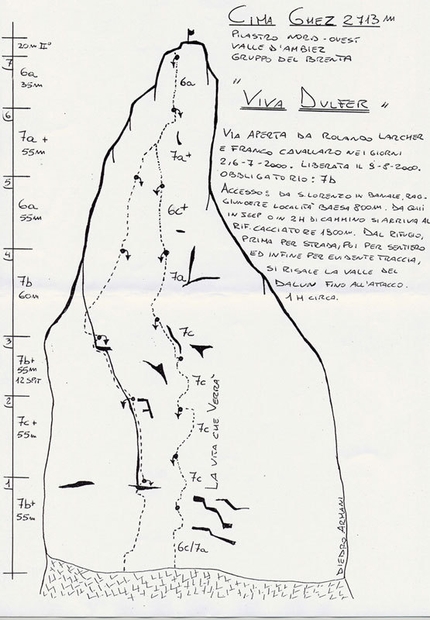 CIMA GHEZ 2713 m
PILASTRO NORD-OVEST
VALLE D'AMBIEZ
GRUPPO DEL BRENTA
" VIVA DULFER "
VIA APERTA DA ROLANDO LARCHER
E FRANCO CAVALLARO NEI GIORNI
2,6-7-2000. LIBERATA IL 9-8-2000.
OBBLIGATORIO: 7b
ACCESSO: DA S.LORENZO IN BANALE, RAG-
GIUNGERE LOCALITÀ BAESA 800M. DA QUI
IN JEEP O IN 2H DI CAMMINO SI ARRIVA AL
RIF. CACCIATORE 1800M. DAL RIFUGIO,
PRIMA PER STRADA, POI PER SENTIERO
ED INFINE PER EVIDENTE TRACCIA,
SI RISALE LA VALLE DEL
DALUN FINO ALL'ATTACCO.
1H CIRCA.
20m II°
7
6a
35m
6
7a+
55m
5
6a
55m
4
7b
60m
3
7b+
55m
12 SPIT
2
7c+
55m
1
7b+
55m
6a
7a+
6c+
7a
7c
7c
7c
7c
6c/7a
LA VITA CHE VERRÀ
DIEDRO ARMANI